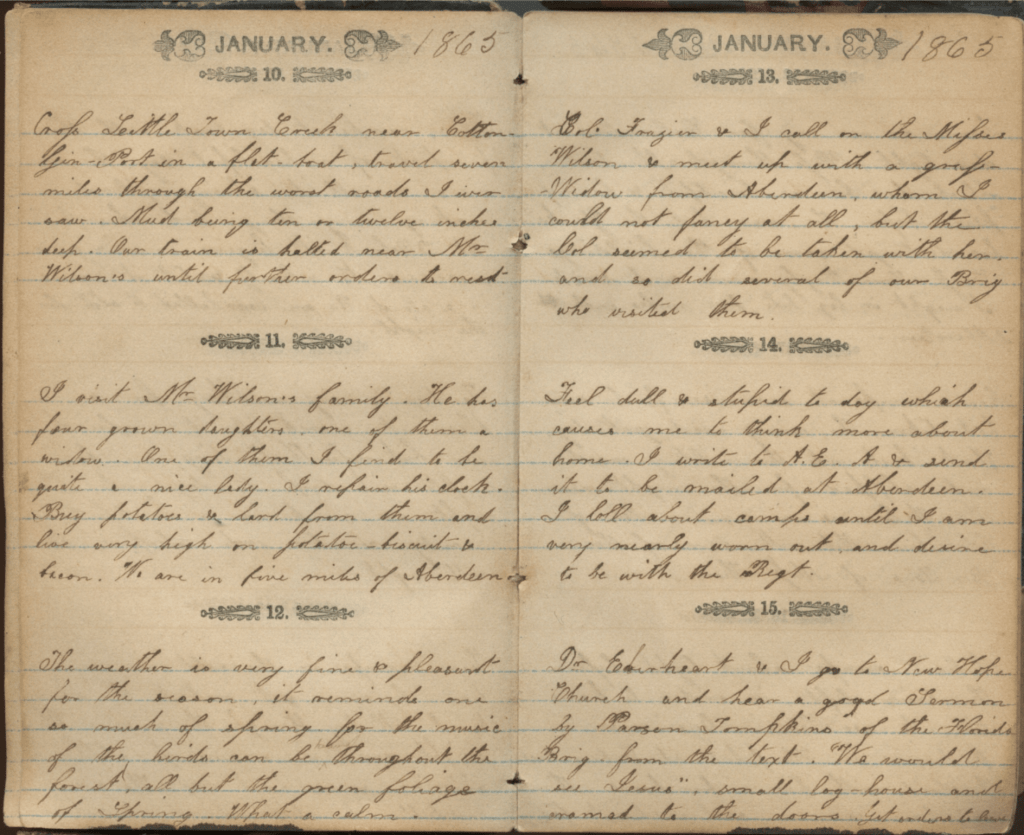 JANUARY. 1865
10.
Cross Little Town Creek near Cotton-
Gin-Port in a flat-boat, travel seven
miles through the worst roads I ever
saw. Mud being ten or twelve inches
deep. Our train is halted near Mr
Wilson's until further orders to rest
11.
I visit Mr Wilson's family. He has
four grown daughters, one of them a
widow. One of them I find to be
quite a nice lady. I repair his clock.
Buy potatoes & lard from them and
live very high on potatoe-biscuit &
bacon. We are in five miles of Aberdeen.
12.
The weather is very fine & pleasant
for the season, it reminds one
so much of spring for the music
of the birds can be throughout the
forest, all but the green foliage
of Spring. What a calm.
JANUARY. 1865
13.
Col. Frazier & I call on the Misses
Wilson & meet up with a grass-
-Widow from Aberdeen, whom I
could not fancy at all, but the
Col seemed to be taken with her.
and so did several of our Brig
who visited them.
14.
Feel dull & stupid to day which
causes me to think more about
home. I write to A.E. A & send
it to be mailed at Aberdeen.
I loll about camps until I am
very nearly worn out, and desire
to be with the Regt.
15.
Dr Eberheart & I go to New Hope
Church and hear a good Sermon
by Parson Tompkins of the Florida
Brig. from the text. "We would
see Jesus", small log-house and
cramed to the doors. Get orders to leave